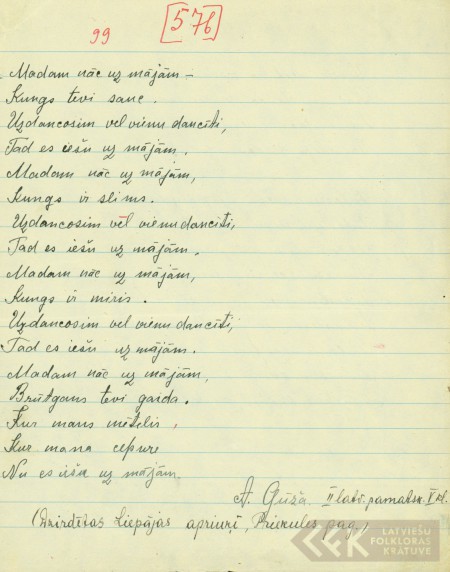 99 [576]
Madam nāc uz mājām –
Kungs tevi sauc.
Uzdancosim vel vienu dancīti,
Tad es iešu uz mājām.
Madam nāc uz mājām,
Kungs ir slims.
Uzdancosim vēl vienu dancīti,
Tad es iešu uz mājām.
Madam nāc uz mājām,
Kungs ir miris.
Uzdancosim vel vienu dancīti,
Tad es iešu uz mājām.
Madam nāc uz mājām,
Brūtgans tevi gaida.
Kur mans mētelis,
Kur mana cepure
Nu es iešu uz mājām.
A. Gūža. II latv. pamatsk. V kl.
(Dzirdētas Liepājas apriņķī, Priekules pag.)
LATVIEŠU
FOLKLORAS
KRĀTUVE